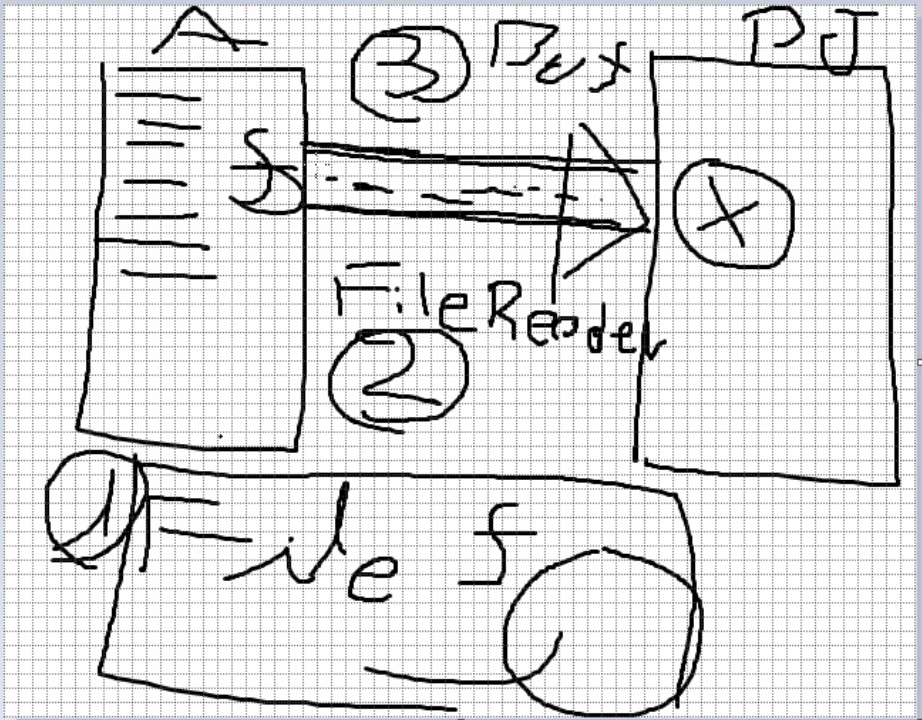 A
3 Buf
PJ
f
X
FileReader
2
1 File f